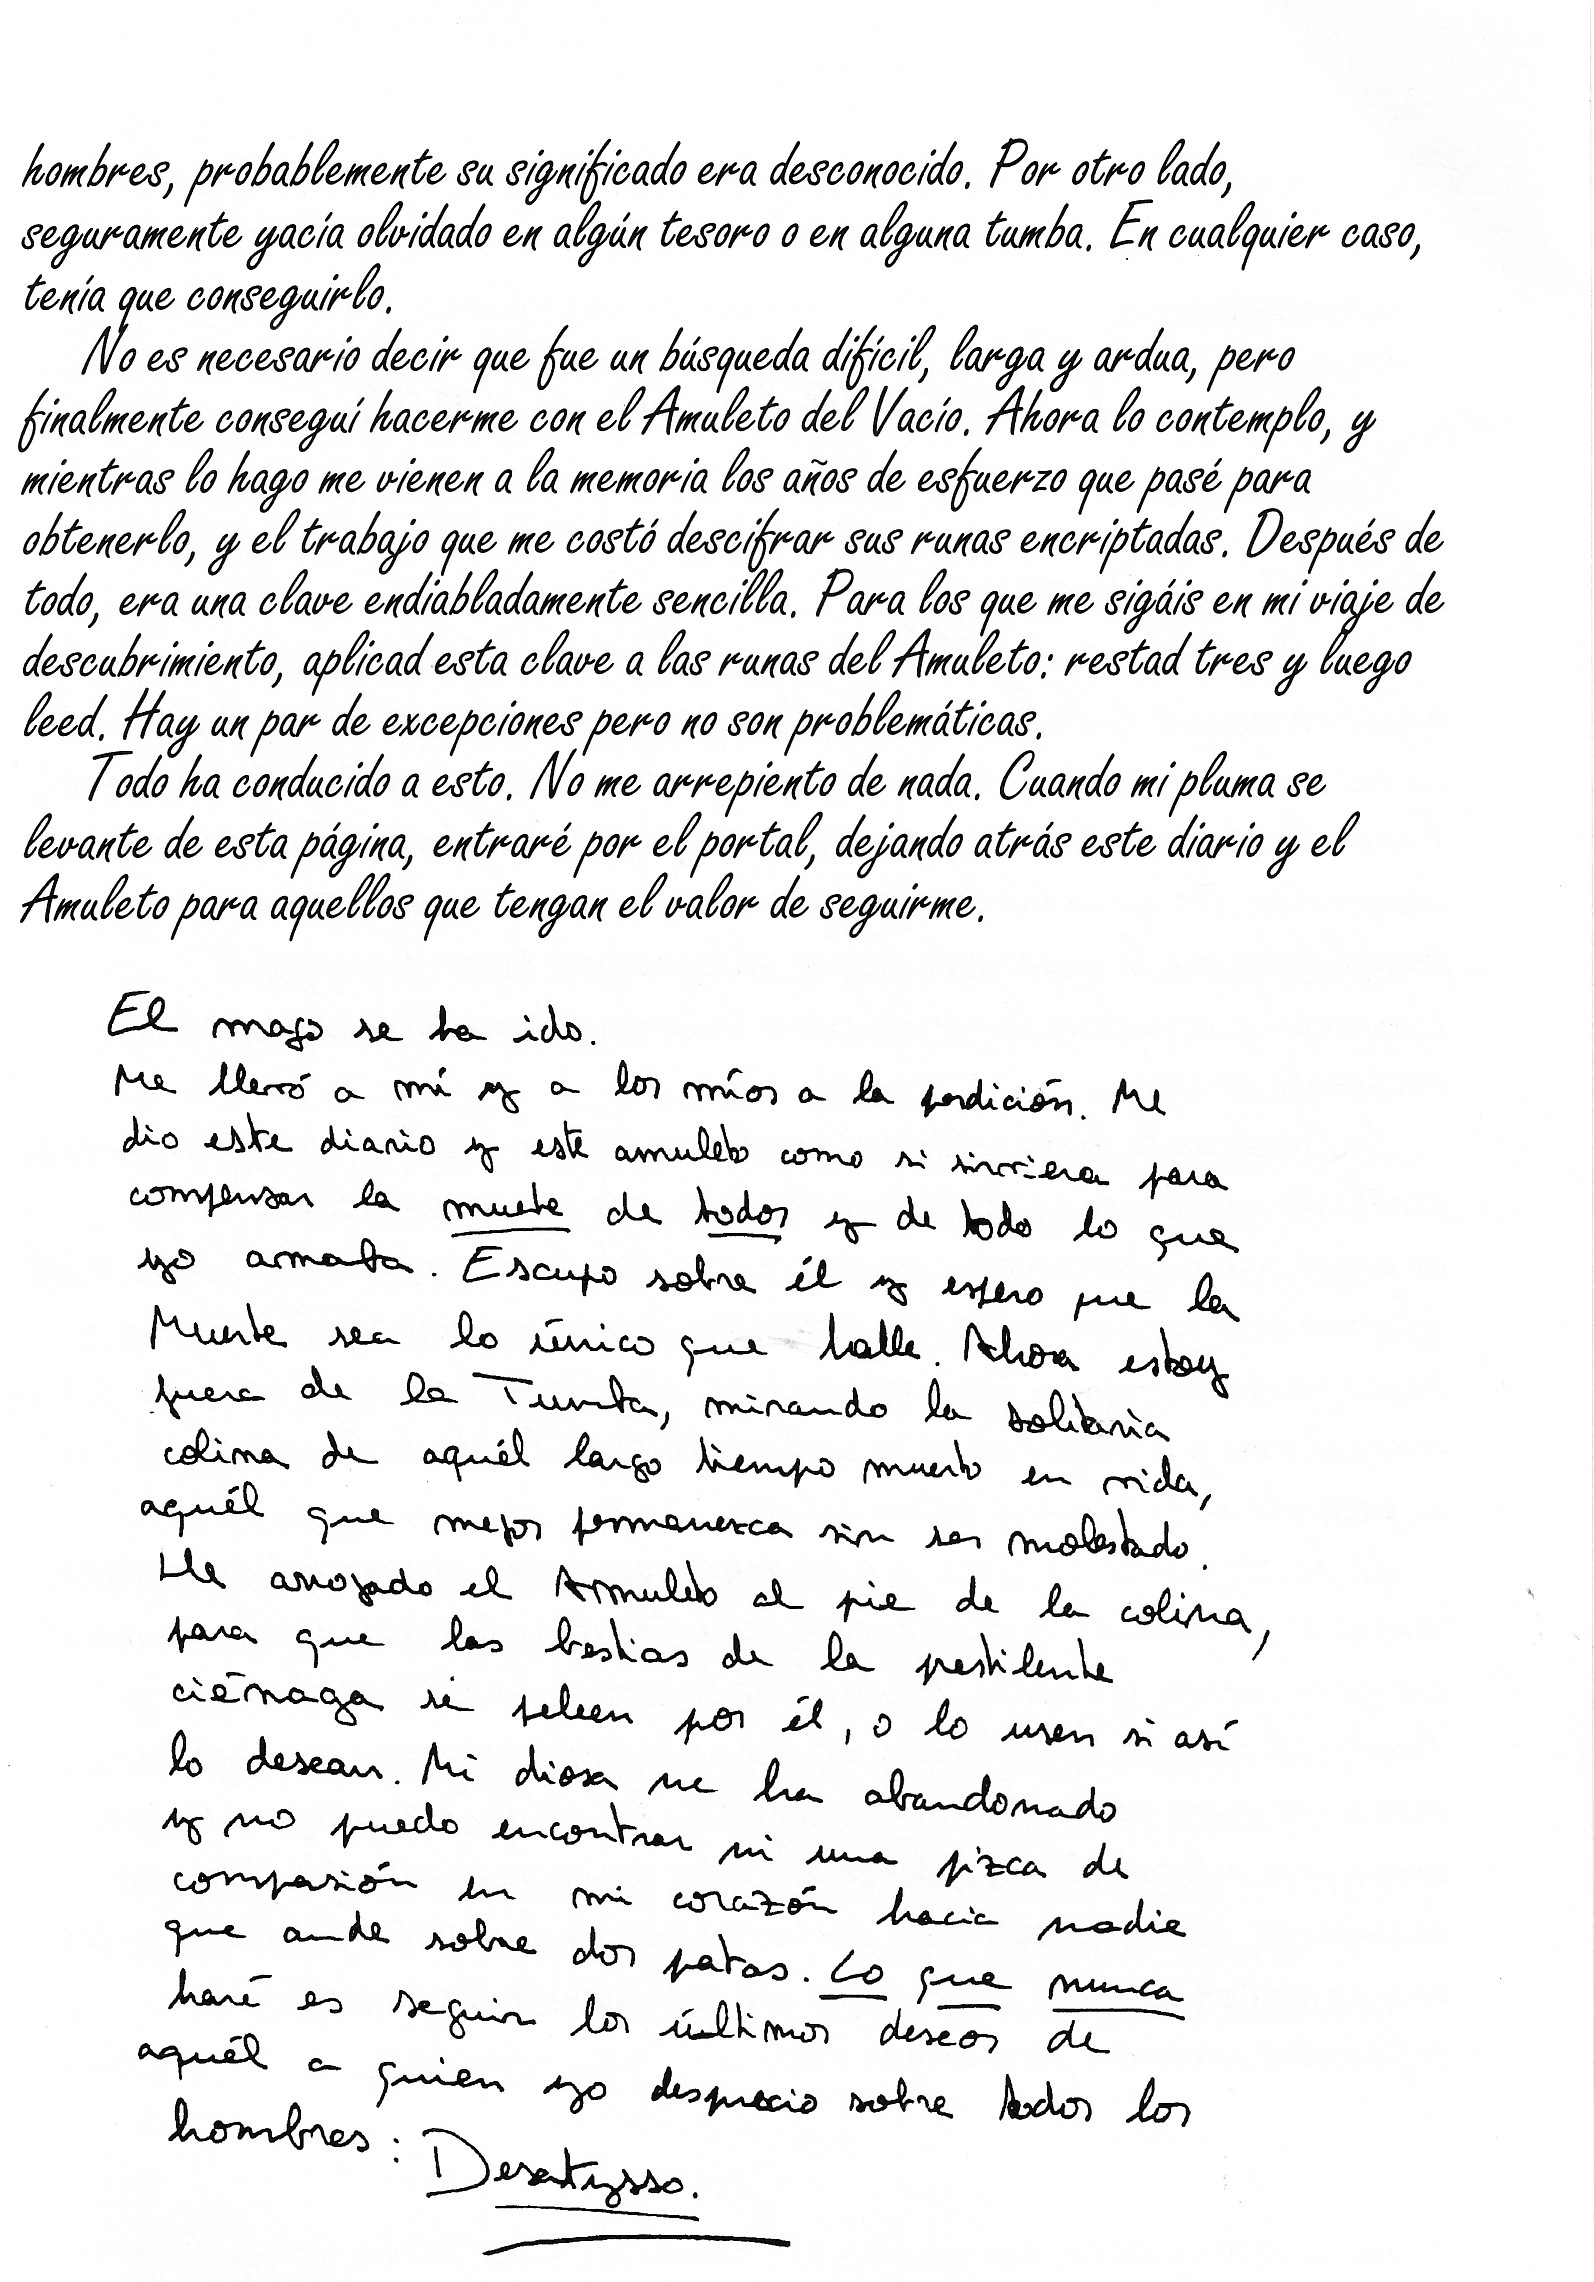 hombres, probablemente su significado era desconocido. Por otro lado,
seguramente yacía olvidado en algún tesoro o en alguna tumba. En cualquier caso,
tenía que conseguirlo.
No es necesario decir que fue un búsqueda difícil, larga y ardua, pero
finalmente conseguí hacerme con el Amuleto del Vacío. Ahora lo contemplo, y
mientras lo hago me vienen a la memoria los años de esfuerzo que pasé para
obtenerlo, y el trabajo que me costó descifrar sus runas encriptadas. Después de
todo, era una clave endiabladamente sencilla. Para los que me sigáis en mi viaje de
descubrimiento, aplicad esta clave a las runas del Amuleto: restad tres y luego
leed. Hay un par de excepciones pero no son problemáticas.
Todo ha conducido a esto. No me arrepiento de nada. Cuando mi pluma se
levante de esta página, entraré por el portal, dejando atrás este diario y el
Amuleto para aquellos que tengan el valor de seguirme.
El mago se ha ido.
Me llevó a mí y a los míos a la perdición. Me
dio este diario y este amuleto como si sirviera para
compensar la muerte de todos y de todo lo que
yo amaba. Escupo sobre él y espero que la
Muerte sea lo único que halle. Ahora estoy
fuera de la Tumba, mirando la solitaria
colina de aquél largo tiempo muerto en vida,
aquél que mejor permanezca sin ser molestado.
He arrojado el Amuleto al pie de la colina,
para que las bestias de la pestilente
ciénaga se peleen por él, o lo usen si así
lo desean. Mi diosa me ha abandonado
y no puedo encontrar ni una pizca de
compasión en mi corazón hacia nadie
que ande sobre dos patas. Lo que nunca
haré es seguir los últimos deseos de
aquél a quien yo desprecio sobre todos los
hombres: Desatysso.